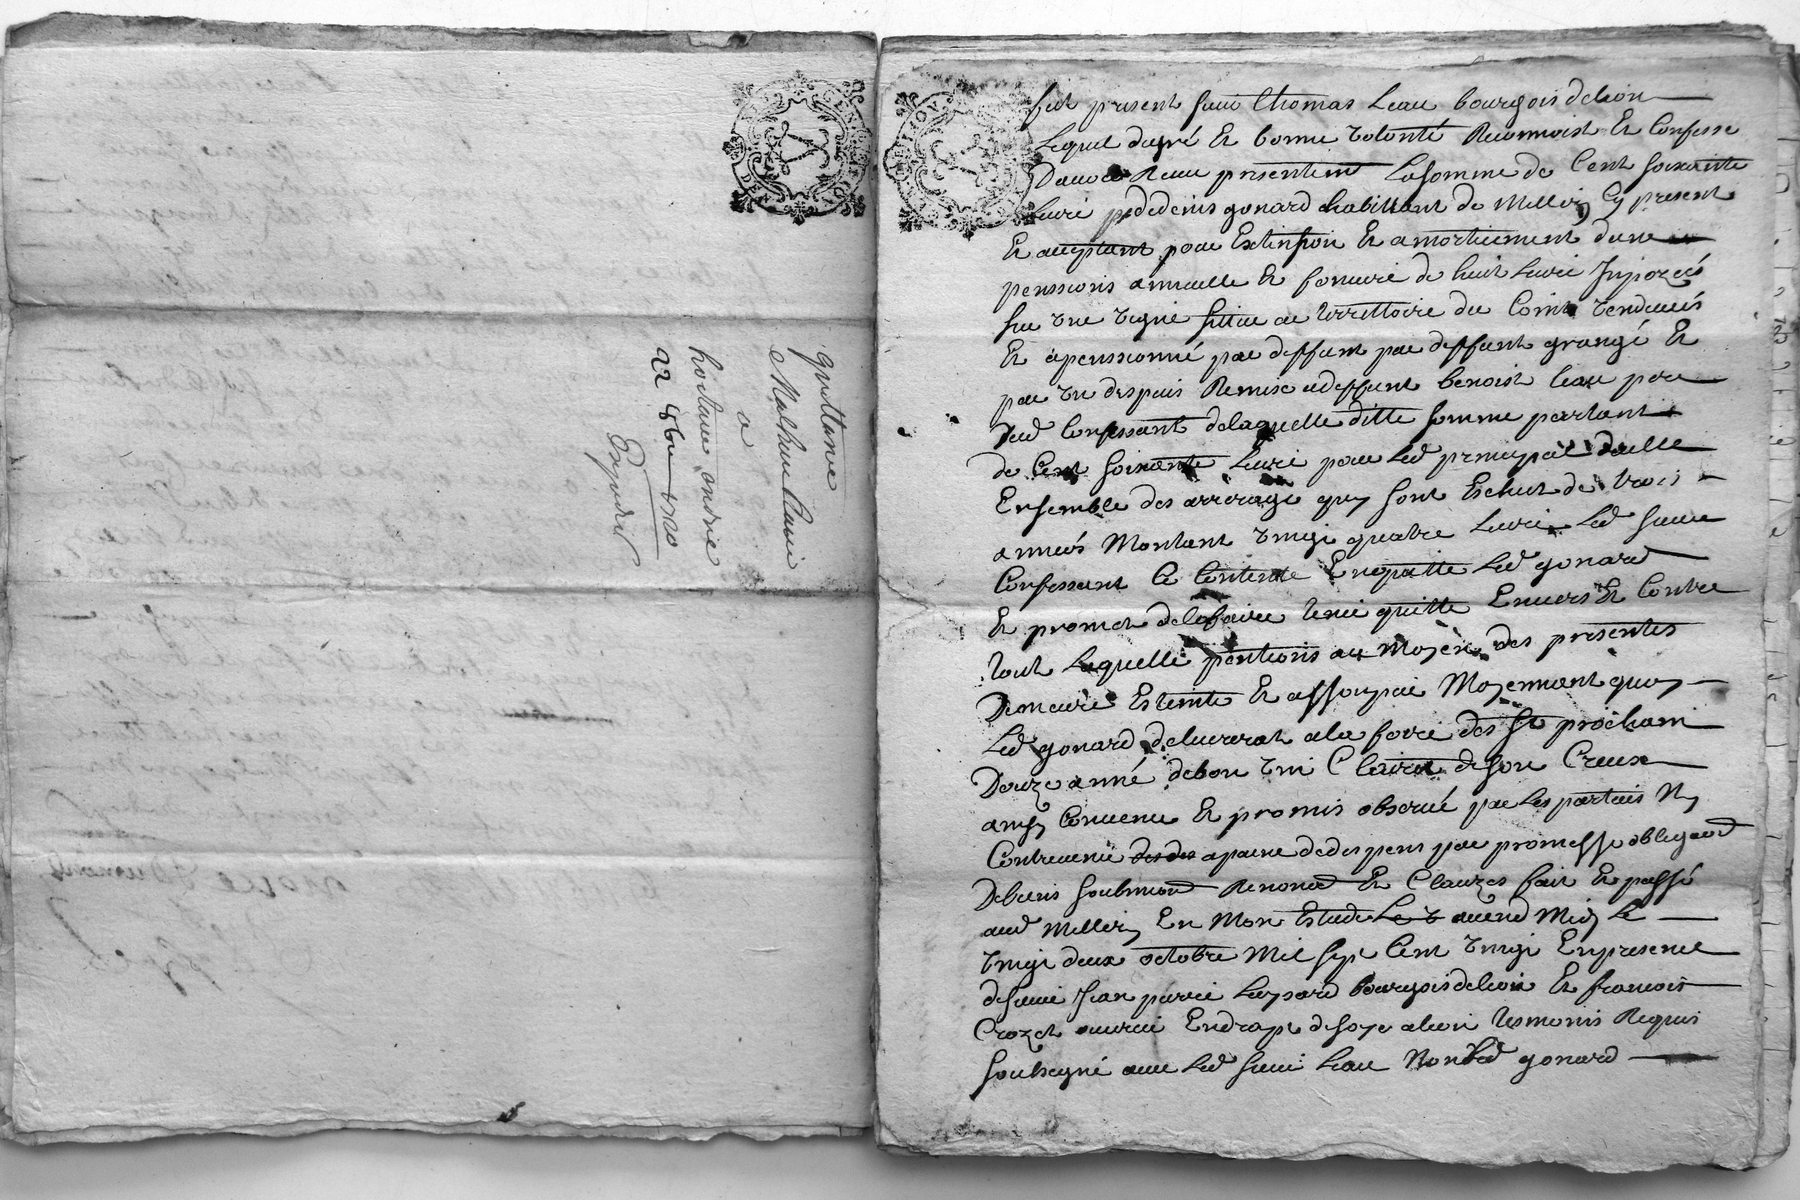 quittance
Mathieu Claire
a
hoilaire andre
22 8bre 1720
Expedié
fut present sieur Thomas Leau bourgois delion
Lequel dugré Et bonne volonté Reconnoist Et Confesse
Davoir Receu presentemt La somme de Cent soixante
livre p dedenis gonard habittant de Millery Cy present
Et aceptant pour Extinsion Et amortiement dune
penssions annuelle Et fonciere de huit livre Inpozéé
sur vne vigne sittue au territtoire du
Et apenssionné par deffunt par deffunt grangé Et
par vu despuis Remise a deffunt benoist leau pere
Dud Confessant delaquelle ditte somme partant
de Cent soixante livre pour Led principal dicelle
Ensemble des arrerage quy sont Escheut de trois
années Montant vingt quatre livre Led sieur
Confessant Ce Contente Enquitte Led gonard
Et promet delefaire tenir quitte Envers Et Contre
tout Laquelle pentions au Moyen des presentes
Demeure Esteinte Et assoupie Moyennant quoy
Led gonard delivrerat ala foire des st prochain
Douze anné debon vin Clairet deson Creux
ainsy Convenu Et promis observé par Les partais Ny
Contrevenir des des apaine dedespens par promesse obligaõn
Debiens soubmiõn Renonõn Et Clauzes fait Et passé
aud Millery En Mon Estude Le avend Midy Le
vingt deux octobre Mil sept Cent vingt Enpresence
desieur Jean pierre bourgois delion Et francois
Crozet ouvrier Endrapt desoye alion tesmoins Requis
soubsigné avec Led sieur Leau Non Led gonard